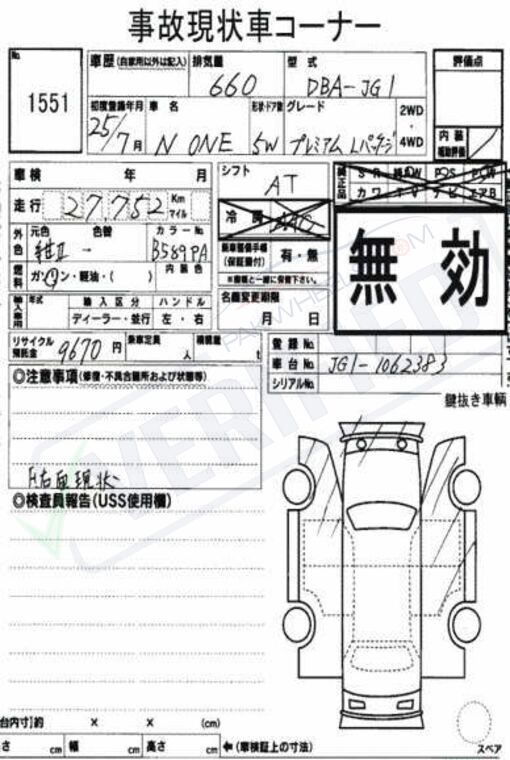 事故現状車コーナー
No. 1551
車歴 (自家用以外は記入)
排気量 660
型式 DBA-JG1
評価点
初度登録年月 25/7月
車名 N ONE
形状・ドア数 5W
グレード プレミアム Lパッケージ
2WD・4WD
内装補助評価
車検 年 月
シフト AT
純正品 SR PS PW
カワ TV ナビ エアB
走行 27,752 Km マイル
冷房
外色 元色 紺II 色替 カラーNo. B589PA
乗車整備手帳 (保証書付) 有・無
※車輌と一緒に保管下さい。
無効
燃料 ガソリン・軽油・( ) 内装色
名義変更期限 月 日
輸入車用 年式 輸入区分 ハンドル
ディーラー・並行 左・右
リサイクル預託金 9670円 乗車定員 人 積載量 t
登録No.
車台No. JG1-1062383
シリアルNo.
鍵抜き車輌
◎注意事項 (修復・不具合箇所および状態等)
右面現状
◎検査員報告 (USS使用欄)
PAKWHEELS.COM
VERIFIED
台内寸)約 × × (cm)
さ cm 幅 cm 高さ cm ←(車検証上の寸法)
スペア